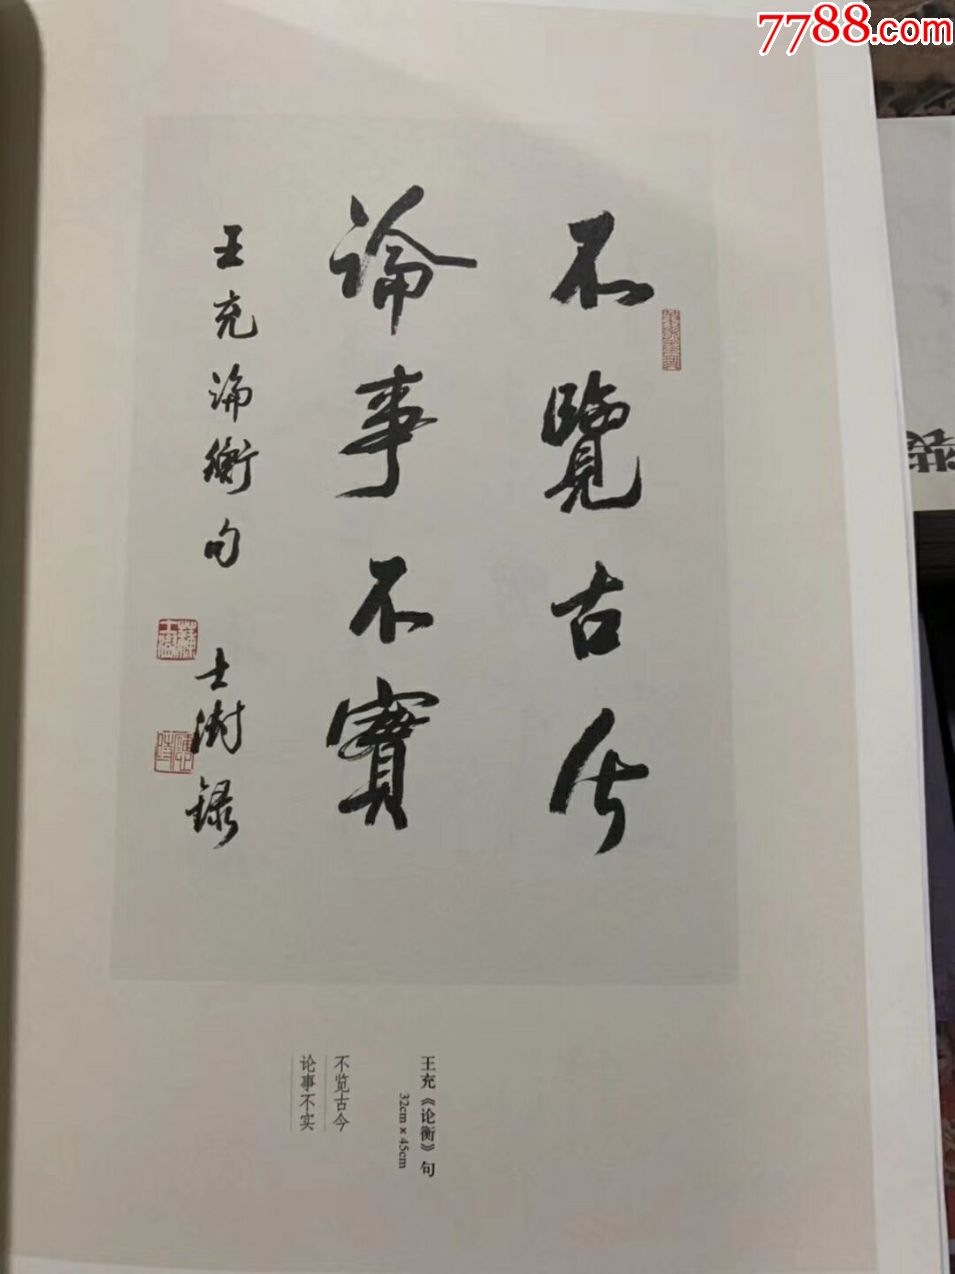 7788.com
不覽古今
論事不實
王充論衡句 士澍録
王充《论衡》句
32cm×45cm
不览古今
论事不实